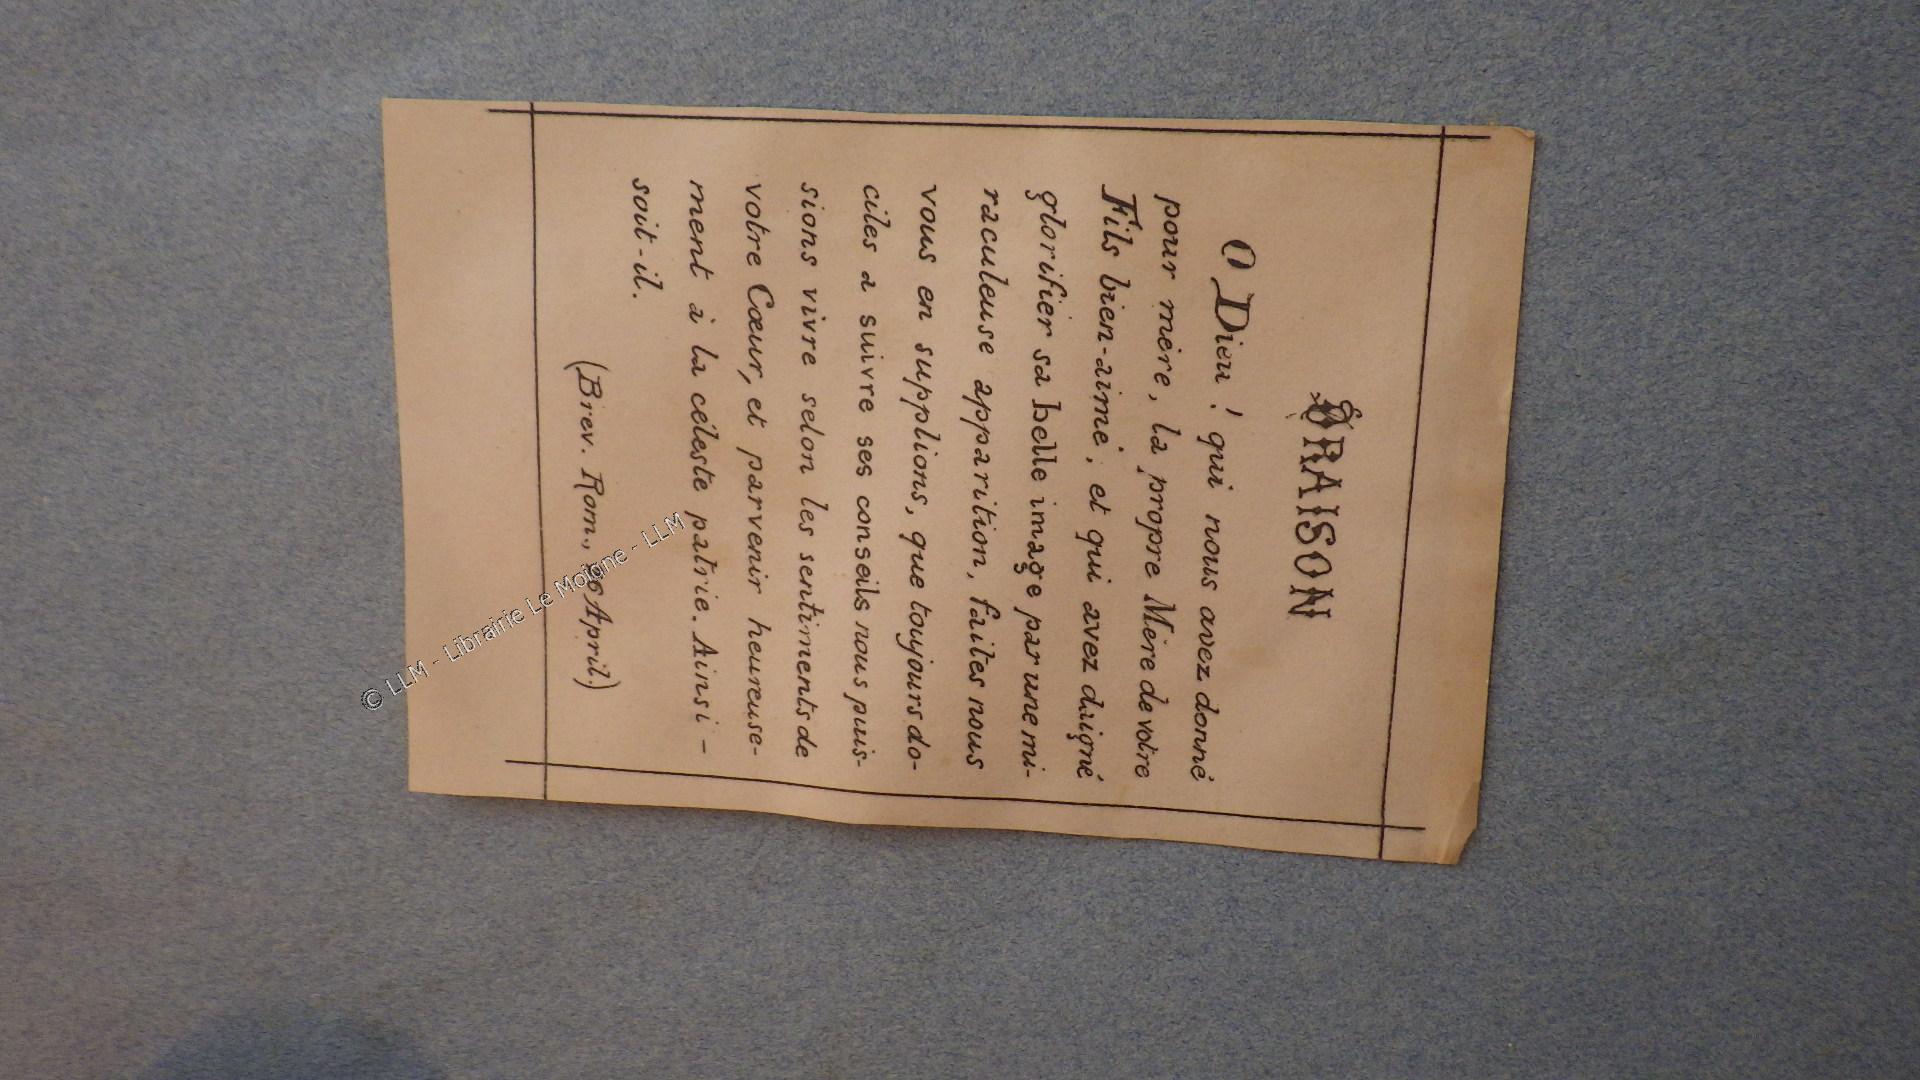 ORAISON
O Dieu! qui nous avez donné
pour mère, la propre Mère de votre
Fils bien-aimé, et qui avez daigné
glorifier sa belle image par une mi-
raculeuse apparition, faites nous
vous en supplions, que toujours do-
ciles a suivre ses conseils nous puis-
sions vivre selon les sentiments de
votre Cœur, et parvenir heureuse-
ment à la céleste patrie. Ainsi-
soit-il.
(Brev. Rom., 26 April)
© LLM - Librairie Le Moigne - LLM